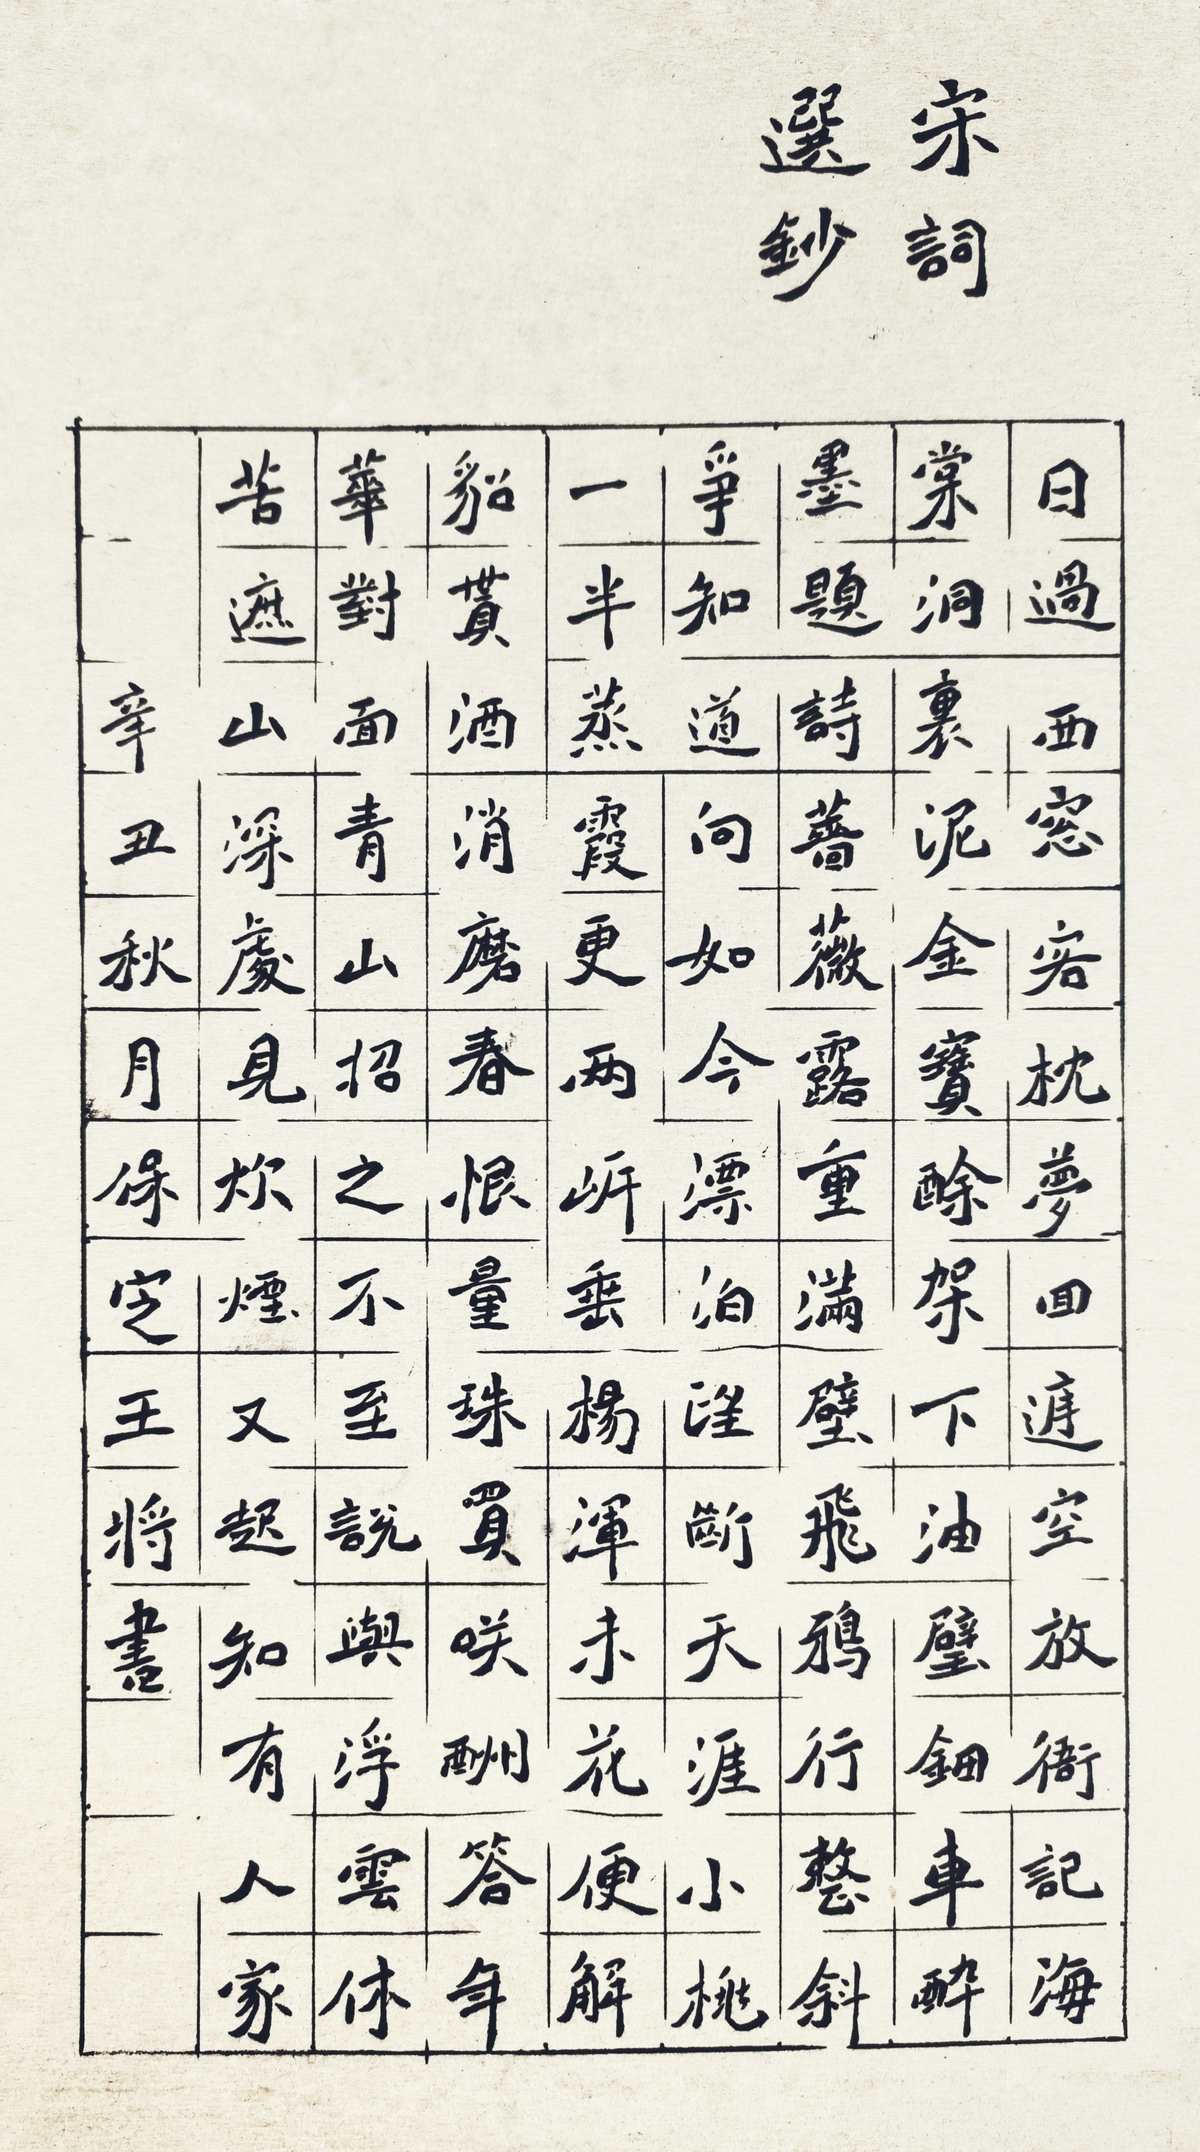 宋詞
選鈔
日過西窓客枕夢囬庭空放衙記海
棠洞裏泥金寶酴架下油壁鈿車醉
墨題詩薔薇露重滿壁飛鴉行整斜
爭知道向如今漂泊望斷天涯小桃
一半蒸霞更两岸垂楊渾未花便解
貂貰酒消磨春恨量珠買咲酬答年
華對面青山招之不至說與浮雲休
苦遮山深處見炊煙又起知有人家
辛丑秋月保定王將書